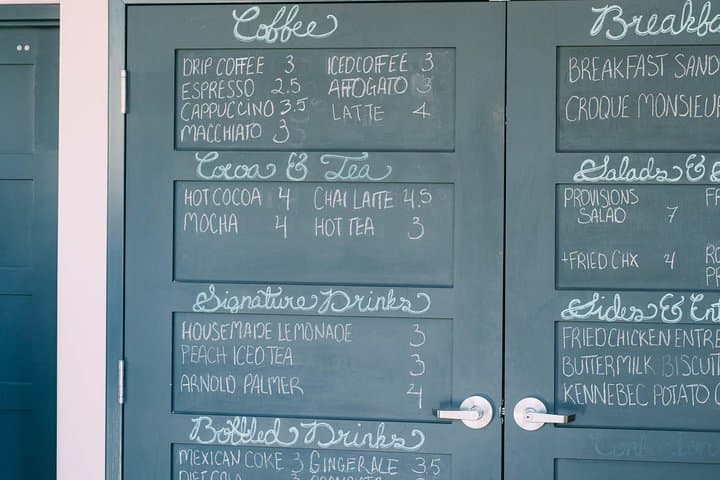 Coffee
DRIP COFFEE 3 ICED COFFEE 3
ESPRESSO 2.5 AFFOGATO 3
CAPPUCCINO 3.5 LATTE 4
MACCHIATO 3
Cocoa & Tea
HOT COCOA 4 CHAI LATTE 4.5
MOCHA 4 HOT TEA 3
Signature Drinks
HOUSEMADE LEMONADE 3
PEACH ICED TEA 3
ARNOLD PALMER 4
Bottled Drinks
MEXICAN COKE 3 GINGERALE 3.5
Breakfa
BREAKFAST SAND
CROQUE MONSIEUR
Salads &
PROVISIONS
SALAD 7
+FRIED CHX 4
Sides & Ent
FRIED CHICKEN ENTRE
BUTTERMILK BISCUIT
KENNEBEC POTATO C